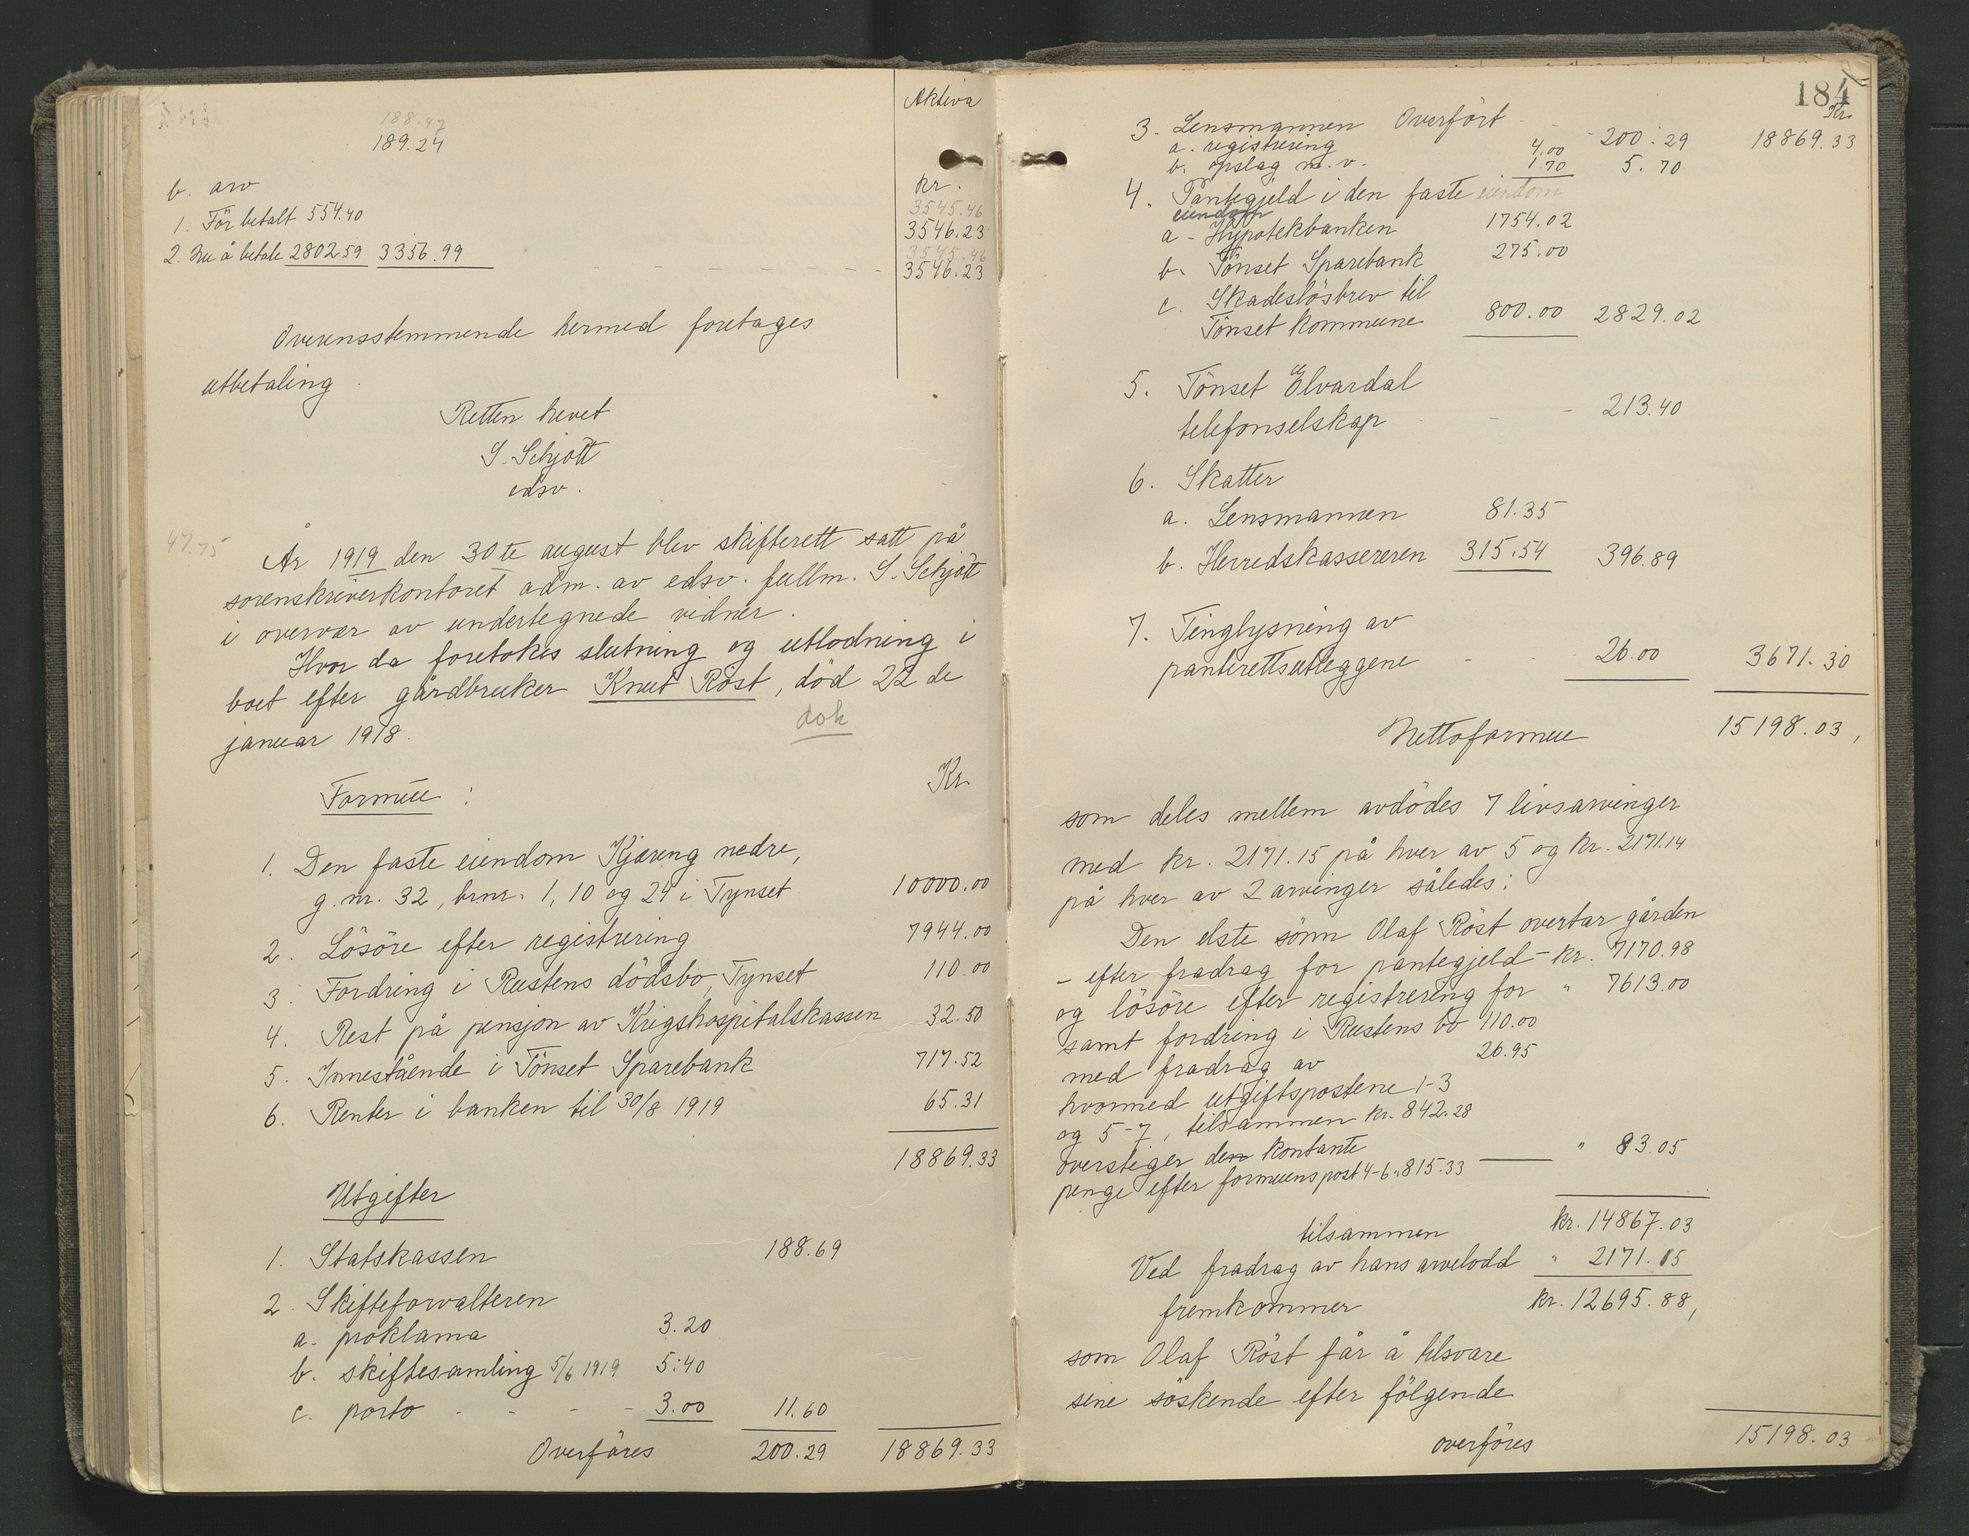 Aktiva
188.47
189.24
b. arv kr.
3545.46
1. Før betalt 554.40 3546.23
3545.46
2. Nu å betale 2802 59 3356.99 3546.23
Overensstemmende hermed foretages
utbetaling.
Retten hevet
S. Schjött
edsv.
47.75
År 1919 den 30te august blev skifterett satt på
sorenskriverkontoret adm. av edsv. fullm. S. Schjött
i overvær av undertegnede vidner.
Hvor da foretokes slutning og utlodning i
boet efter gårdbruker Knut Röst, död 22 de
januar 1918.
dok
Formue : Kr.
1. Den faste eiendom Kjæreng nedre,
g. nr. 32, brnr. 1, 10 og 24 i Tynset 10000.00
2. Lösöre efter registrering 7944.00
3. Fordring i Rustens dödsbo, Tynset 110.00
4. Rest på pensjon av Krigshospitalskassen 32.50
5. Innestående i Tönset Sparebank 717.52
6. Renter i banken til 30/8 1919 65.31
18869.33
Utgifter
1. Statskassen 188.69
2. Skifteforvalteren
a. proklama 3.20
b. skiftesamling 5/6 1919 5:40
c. porto - - - - 3.00 11.60
Overföres 200.29 18869.33
184
Kr.
3. Lensmannen Overfört - - 200.29 18869.33
a. registrering 4.00
b. opslag m. v. 1.70 5.70
4. Pantegjeld i den faste eiendom
eiendom
a - Hypotekbanken 1754.02
b. Tönset Sparebank 275.00
c. Skadeslösbrev til
Tönset kommune 800.00 2829.02
5. Tönset Elvardal
telefonselskap - - 213.40
6. Skatter
a. Lensmannen 81.35
b. Herredskassereren 315.54 396.89
7. Tinglysning av
panterettsutleggene - - 26.00 3671.30
Nettoformue 15198.03,
som deles mellem avdödes 7 livsarvinger
med kr. 2171.15 på hver av 5 og kr. 2171.14
på hver av 2 arvinger således:
Den elste sönn Olaf Röst overtar gården
- efter fradrag for pantegjeld - kr. 7170.98
og lösöre efter registrering for " 7613.00
samt fordring i Rustens bo 110.00
med fradrag av 26.95
hvormed utgiftspostene 1-3
og 5-7, tilsammen kr. 842.28
oversteger den kontante
penge efter formuens post 4-6 " 815.33 " 83.05
tilsammen kr. 14867.03
Ved fradrag av hans arvelodd " 2171.15
fremkommer kr. 12695.88,
som Olaf Röst får å tilsvare
sine söskende efter fölgende
overföres 15198.03